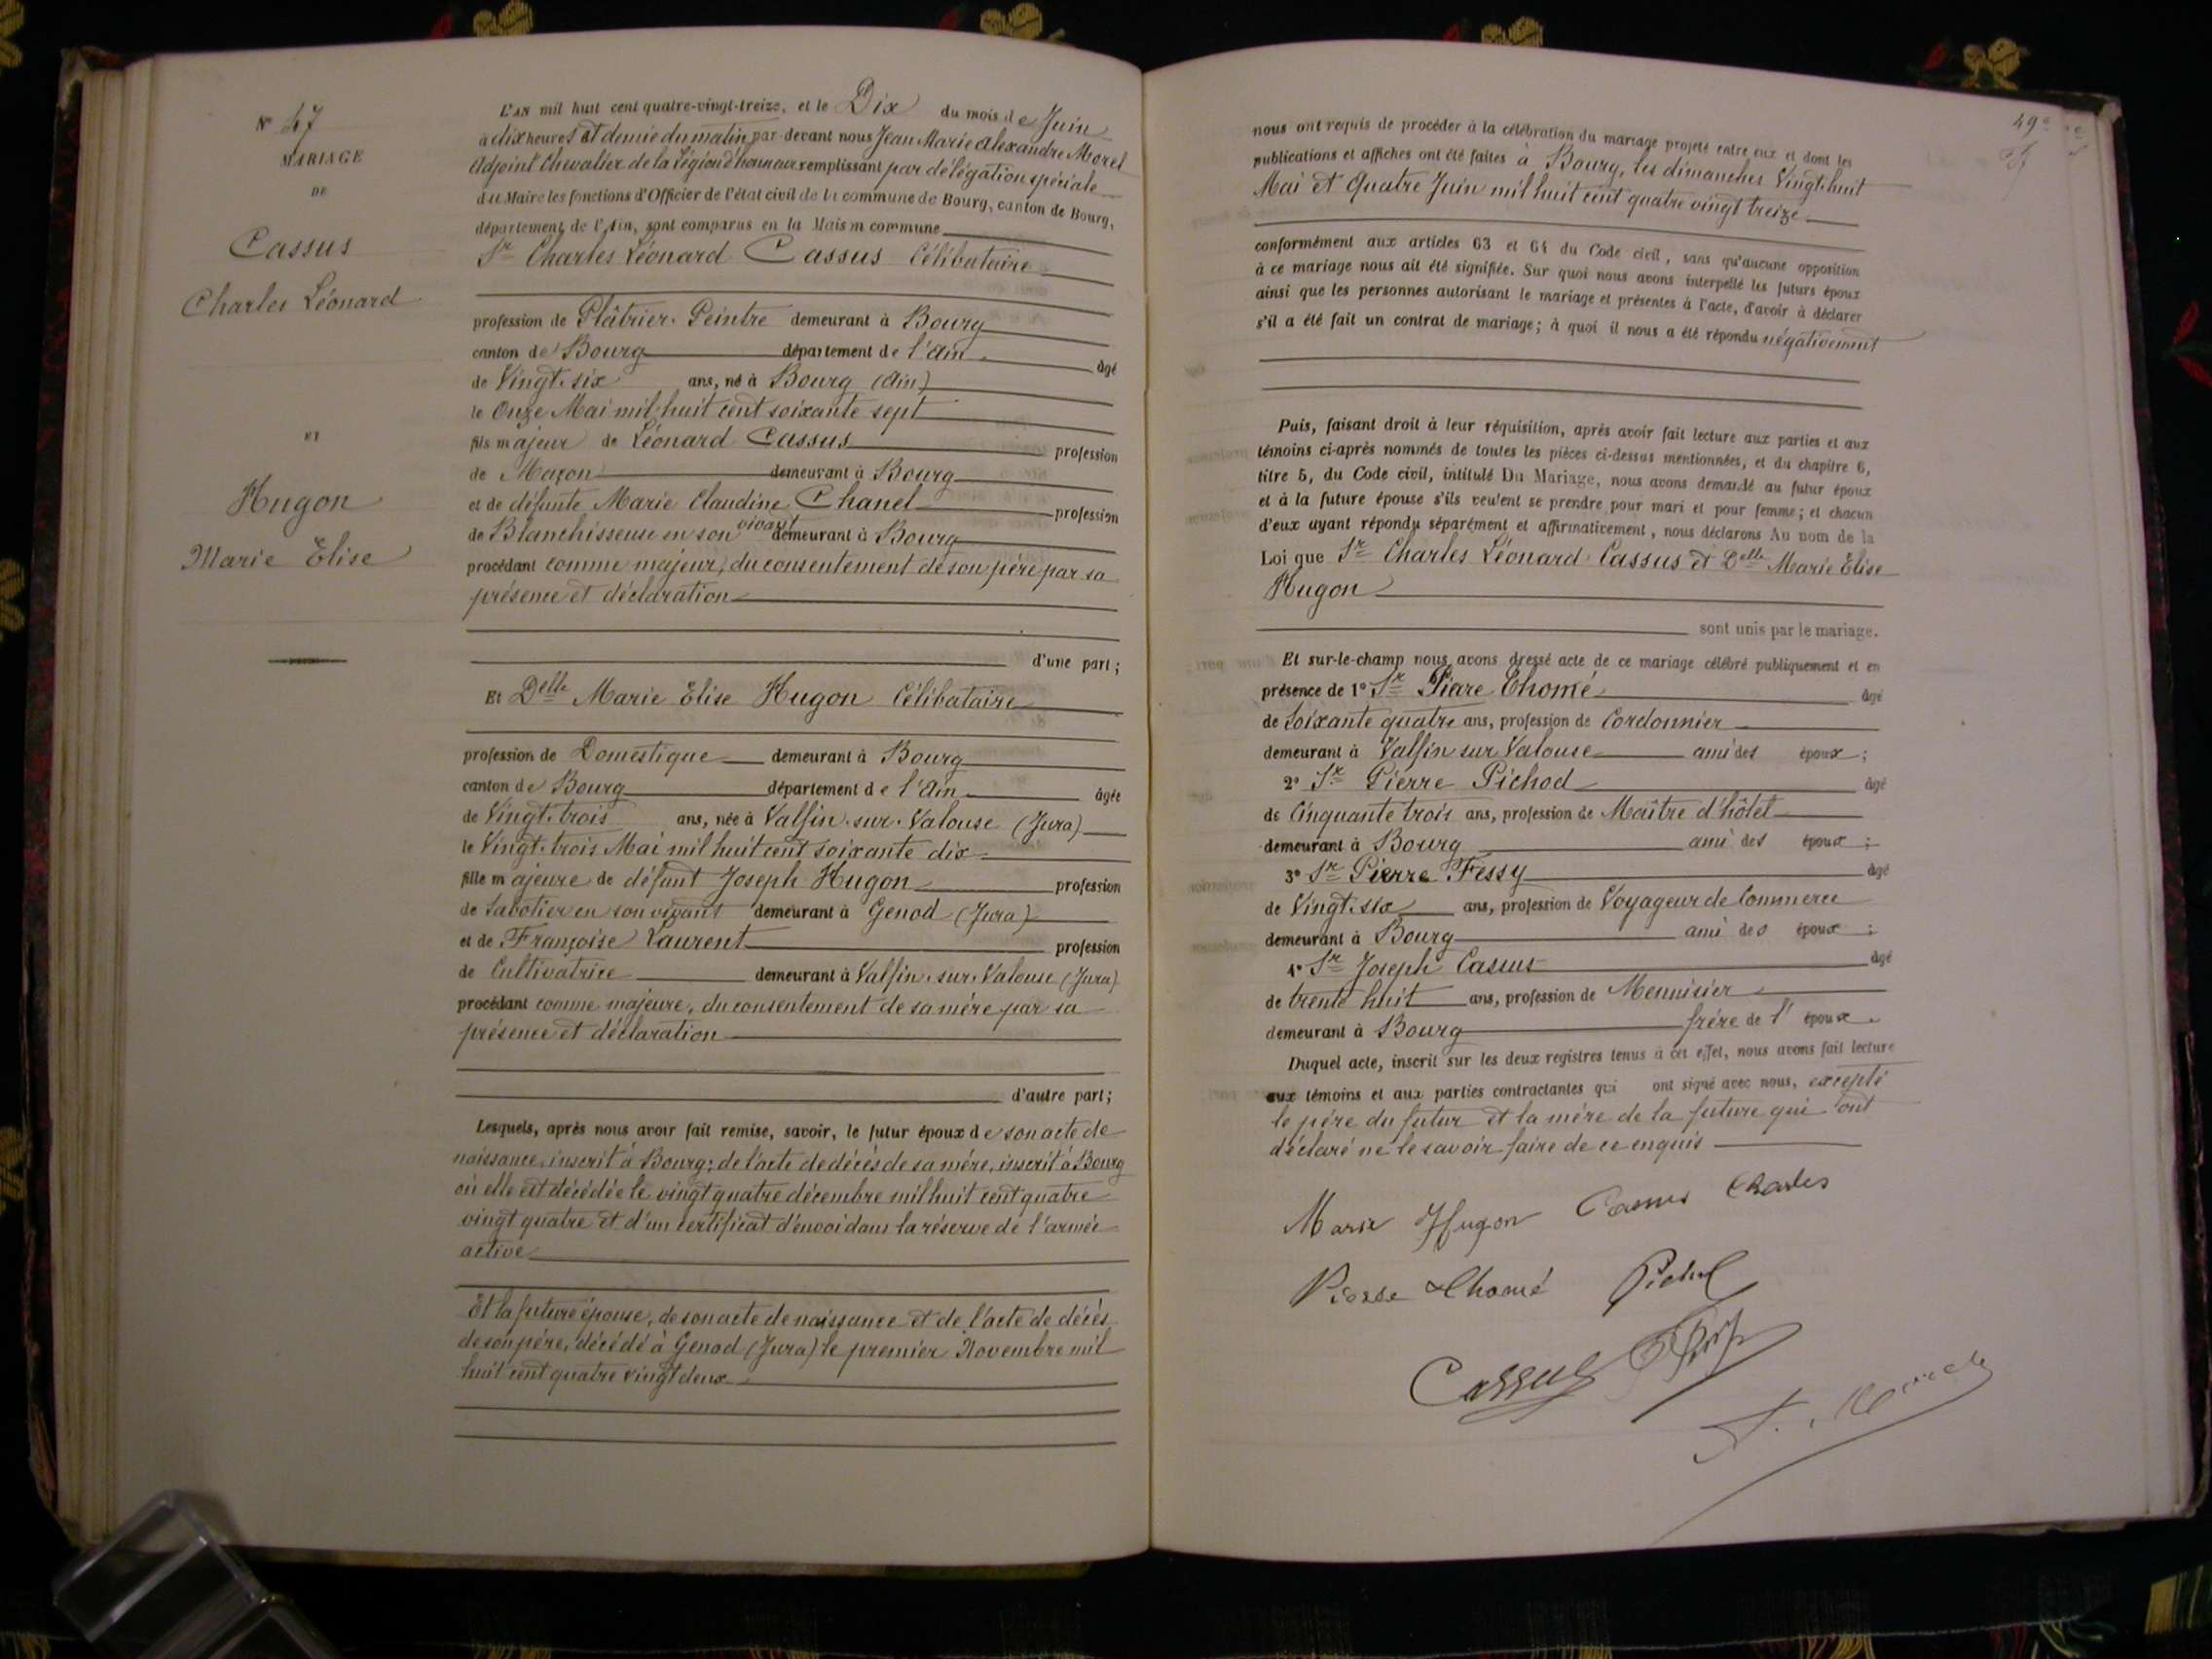 N° 47
MARIAGE
DE
Cassus
Charles Léonard
ET
Hugon
Marie Elise
L'AN mil huit cent quatre-vingt-treize, et le Dix du mois de Juin
à dix heures et demie du matin par-devant nous Jean Marie Alexandre Morel
Adjoint Chevalier de la Légion d'honneur remplissant par délégation spéciale
du Maire les fonctions d'Officier de l'état civil de la commune de Bourg, canton de Bourg,
département de l'Ain, sont comparus en la Maison commune
Sr Charles Léonard Cassus Célibataire
profession de Plâtrier-Peintre demeurant à Bourg
canton de Bourg département de l'Ain âgé
de Vingt-six ans, né à Bourg (Ain)
le Onze Mai mil huit cent soixante sept
fils majeur de Léonard Cassus profession
de Maçon demeurant à Bourg
et de défunte Marie Claudine Chanel profession
de Blanchisseuse en son vivant demeurant à Bourg
procédant comme majeur, du consentement de son père par sa
présence et déclaration
d'une part;
Et Delle Marie Elise Hugon Célibataire
profession de Domestique demeurant à Bourg
canton de Bourg département de l'Ain âgée
de Vingt-trois ans, née à Valfin-sur-Valouse (Jura)
le Vingt-trois Mai mil huit cent soixante dix
fille majeure de défunt Joseph Hugon profession
de Sabotier en son vivant demeurant à Genod (Jura)
et de Françoise Laurent profession
de Cultivatrice demeurant à Valfin-sur-Valouse (Jura)
procédant comme majeure, du consentement de sa mère par sa
présence et déclaration
d'autre part;
Lesquels, après nous avoir fait remise, savoir, le futur époux de son acte de
naissance, inscrit à Bourg; de l'acte de décès de sa mère, inscrit à Bourg
où elle est décédée le vingt quatre décembre mil huit cent quatre
vingt quatre et d'un certificat d'envoi dans la réserve de l'armée
active
Et la future épouse, de son acte de naissance et de l'acte de décès
de son père, décédé à Genod (Jura) le premier Novembre mil
huit cent quatre vingt deux
49e
nous ont requis de procéder à la célébration du mariage projeté entre eux et dont les
publications et affiches ont été faites à Bourg, les dimanches Vingt-huit
Mai et Quatre Juin mil huit cent quatre vingt treize
conformément aux articles 63 et 64 du Code civil, sans qu'aucune opposition
à ce mariage nous ait été signifiée. Sur quoi nous avons interpellé les futurs époux
ainsi que les personnes autorisant le mariage et présentes à l'acte, d'avoir à déclarer
s'il a été fait un contrat de mariage; à quoi il nous a été répondu négativement
Puis, faisant droit à leur réquisition, après avoir fait lecture aux parties et aux
témoins ci-après nommés de toutes les pièces ci-dessus mentionnées, et du chapitre 6,
titre 5, du Code civil, intitulé Du Mariage, nous avons demandé au futur époux
et à la future épouse s'ils veulent se prendre pour mari et pour femme; et chacun
d'eux ayant répondu séparément et affirmativement, nous déclarons Au nom de la
Loi que Sr Charles Léonard Cassus et Delle Marie Elise
Hugon
sont unis par le mariage.
Et sur-le-champ nous avons dressé acte de ce mariage célébré publiquement et en
présence de 1° Sr Pierre Thomé âgé
de Soixante quatre ans, profession de Cordonnier
demeurant à Valfin sur Valouse ami des époux;
2° Sr Pierre Pichod âgé
de Cinquante trois ans, profession de Maître d'hôtel
demeurant à Bourg ami des époux;
3° Sr Pierre Fessy âgé
de Vingt-six ans, profession de Voyageur de Commerce
demeurant à Bourg ami des époux;
4° Sr Joseph Cassus âgé
de trente huit ans, profession de Menuisier
demeurant à Bourg frère de l'époux.
Duquel acte, inscrit sur les deux registres tenus à cet effet, nous avons fait lecture
aux témoins et aux parties contractantes qui ont signé avec nous, excepté
le père du futur et la mère de la future qui ont
déclaré ne le savoir faire de ce enquis
Marie Hugon Cassus Charles
Pierre Thomé Pichod
Cassus
A. Morel